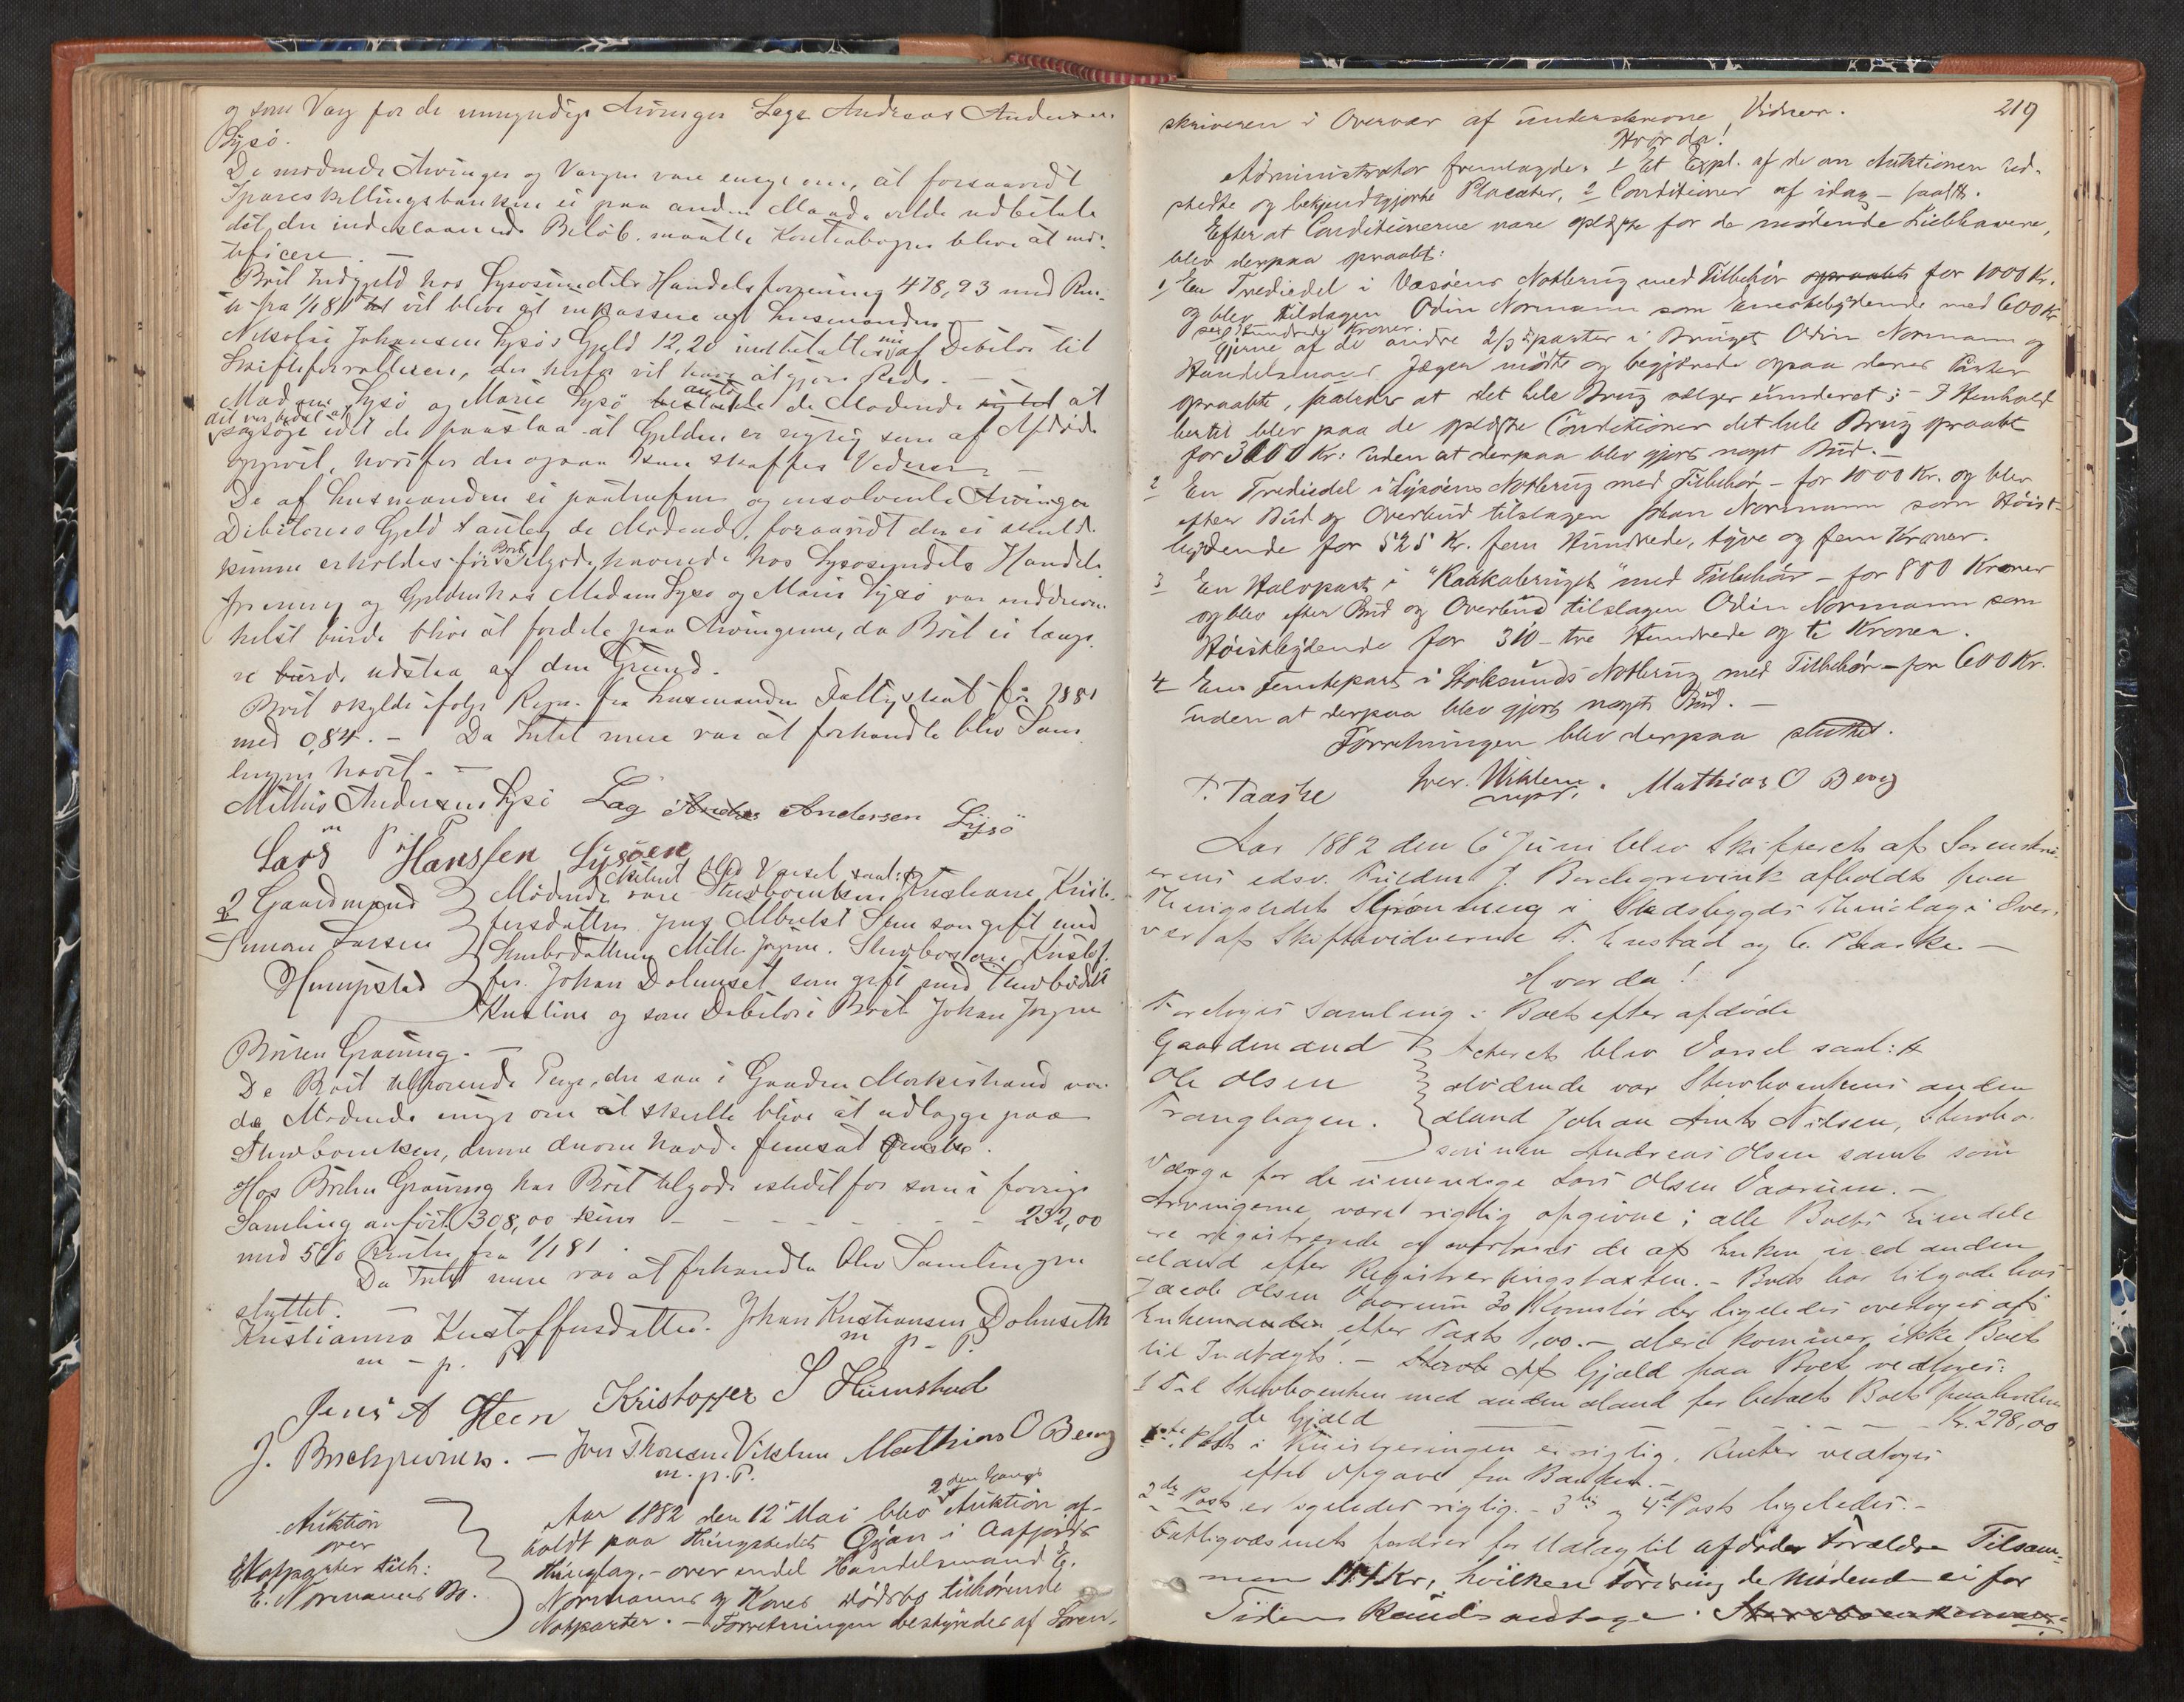 og som Værg for de umyndige Arvinger Lage Andreas Andersen
Lysö.
De mødende Arvinger og Vergen vare enige om, at forsaavidt
Spareskillingsbanken ei paa anden Maade vilde udbetale
det der indestaaende Beløb, maatte Kontrabogen blive at mor-
tificere. —
Boet Indgjeld hos Lysøsundets Handelsforening 478,93 med Ren-
ter fra 1/1 81 vil blive at inkassere af Lensmanden.
Nikolai Johansen Lysös Gjeld 12,20 indbetaltes nu af Debitor til
Skifteforvalteren, der herfor vil have at gjøre Rede. —
Madame Lysö og Marie Lysö de Mødende at
sagsøge idet de paastaa at Gjelden er rigtig som af Afdøde
opgivet, hvorfor der ogsaa kan skaffes Vidner —
De af Lensmanden ei paatrufne og insolvente
Debitorers Gjeld de Mødende, forsaavidt den ei skulde
kunne erholdes før Boets Tilgodehavende hos Lysøsundets Handels
forening og Gjelden hos Madam Lysø og Marie Lysö var inddreven
helst burde blive at fordele paa Arvingerne, da Boet ei længe-
re burde udstaa af den Grund.
Boet skylde ifølge Regn. fra Lensmanden Fattigskat for 1881
med 0,84. — Da Intet mere var at forhandle blev Sam
lingen hævet. —
Mathis Andersen Lysö Lag Andersen Lysö
Lars Hanssen Lysöen
m p P
2 Gaardmand Mødende vare Enkebruken Kristiane Kristof-
Simon Larsen fersdatter, Jens Albrekt Sten som gift med
Humpstad Stervbodatteren Mille Jørgine. Stervbosønnen Kristof-
fer. Johan Dolmset som gift med Stervbodatt
Kristine og som Debitor i Boet Johan Jørgen
Brisen Grøning. —
De Boet tilhørende Penge, der saa i Gaarden Mørkeshaud var
de Mødende enige om at skulle blive at udlægge paa
Stervboenken, denne
Hos Brisen Grøning har Boet tilgode istedet for som i forrige
Samling anført 308,00 kun — — — — 232,00
med 5% Renter fra 1/1 81
Da Intet mere var at forhandle blev Samlingen
sluttet.
Kristianna Kristoffersdatter. Johan Kristiansen Dolmseth
m - p. P m p - P.
Jens A Steen Kristoffer S Humstad
J. Borchgrevink. — Iver Thoresen Viklem Mathias O Berg
m. p. P.
Auktion Aar 1882 den 12te Mai blev 2den Gangs Auktion af-
over holdt paa Thingstedet Qvan i Aafjords
Notparter tilh: Thinglag, — over endel Handelsmand E.
E. Normanns Bo. Normanns og Kones Dødsbo tilhørende
Notparter. — Forretningen bestyredes af Soren-
219
skriveren i Overvær af underskrevne Vidner.
Hvor da!
Administrator fremlagde: 1 Et Expl. af de om Auktionen ud-
stedte og bekjendtgjorte Placater, 2 Conditioner af idag — saal:
Efter at Conditionerne vare oplæste for de mødende Liebhavere,
blev derpaa opraabt:
1 En Trediedel i Væsöens Notbrug med Tilbehør opraabt for 1000 Kr.
og blev tilslagen Odin Normann som Eneste bydende med 600 Kr
sex Hundrede Kroner.
Eierne af de andre 2/3 parter i Bruget Odin Normann og
Handelsmand Jægen mødte og begjærede ogsaa deres Parter
opraabte, saaledes at det hele Brug sælges underet: — I Henhold
hertil blev paa de oplæste Conditioner det hele Brug opraabt
for 3000 Kr: uden at derpaa blev gjort noget Bud. —
2 En Trediedel i Lysöens Notbrug med Tilbehør — for 1000 Kr. og blev
efter Bud og Overbud tilslagen Johan Normann som Høist-
bydende for 525 Kr. fem Hundrede, tyve og fem Kroner.
3 En Halvpart i "Rakkabruget" med Tilbehør — for 800 Kroner
og blev efter Bud og Overbud tilslagen Odin Normann som
Høistbydende for 310 — tre Hundrede og ti Kroner.
4 En Femtepart i Stoksunds Notbrug med Tilbehør — for 600 Kr.
uden at derpaa blev gjort noget Bud. —
Forretningen blev derpaa sluttet.
T. Taaske Iver. Viklem Mathias O Berg
mpP.
Aar 1882 den 6te Juni blev Skifteret af Sorenskri-
verens edsv. Fuldm J. Borchgrevink afholdt paa
Thingstedet Grønning i Stadsbygdens Thinglag i Over-
vær af Skiftevidnerne T. Enstad og C. Paaske. —
Hvor da!
Foretoges Samling i Boet efter afdøde
Gaardmand Acteret blev Varsel saal:
Ole Olsen Mødende var Stervboenkens anden
Tranghagen. Mand Johan Nilsen, Stervbo-
sønnen Andreas Olsen samt som
Værge for de umyndige Lars Olsen Vaarum. —
Arvingerne vare rigtig opgivne; alle Boets Eiendele
ere registrerede og overtoges de af Enken med anden
Mand efter Registreringstaxten. — Boet har tilgode hos
Jacob Olsen Vaarum 30 der ligeledes overtoges af
Enkemanden efter Taxt 1,00. — Mere kommer ikke Boet
til Indtægt. — Af Gjæld paa Boet vedtoges:
1 Til Stervboenken med anden Mand for betalt Boet paahvilen
de Gjæld — — — Kr. 298,00
1ste Post i Registreringen er rigtig. Renter vedtoges
efter Opgave fra Banken. —
2den Post er ligeledes rigtig. — 3die og 4de Post ligeledes. —
Fattigvæsenets fordrer for Udlæg til afdødes Forældre Tilsam-
men 114 Kr, hvilken Fordring de Mødende ei for
Tiden kunde vedtage.